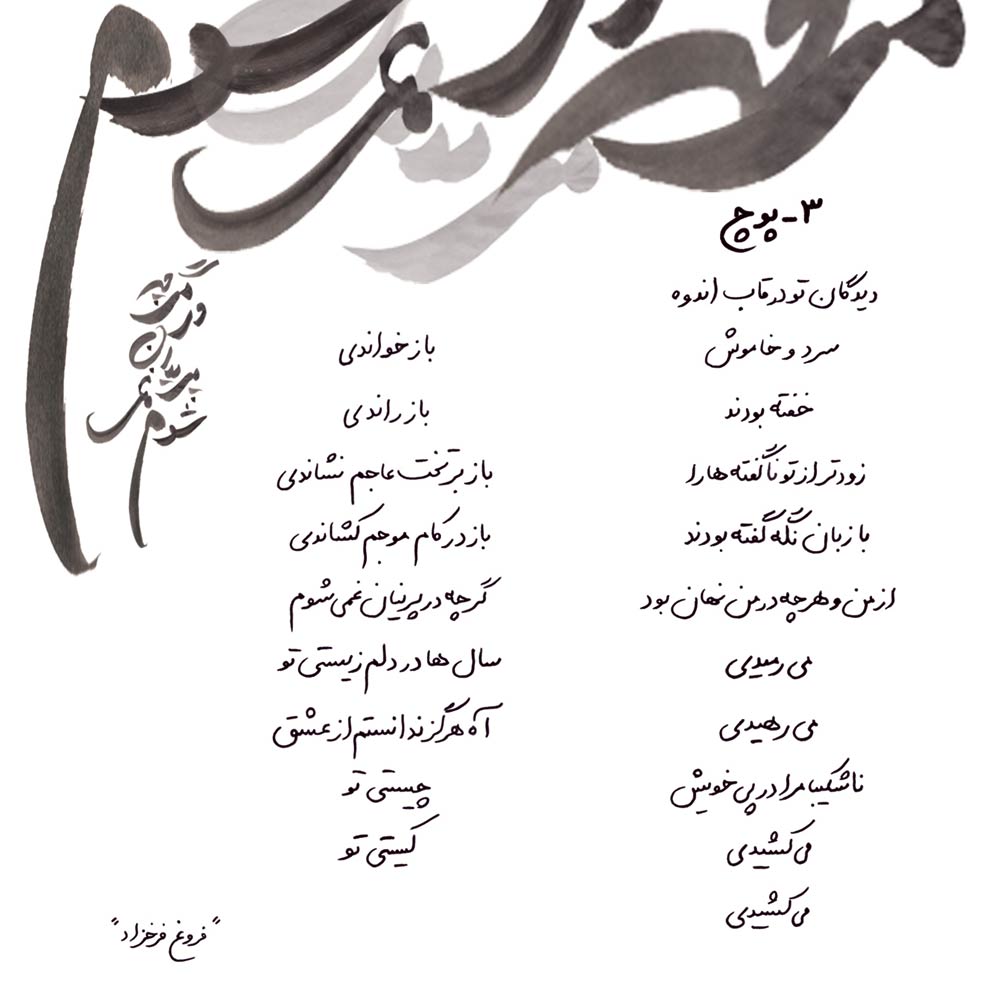 ۳- پوچ
دیدگان تو در قاب اندوه
سرد و خاموش
خفته بودند
زودتر از تو ناگفته ها را
با زبان نگه گفته بودند
از من و هرچه در من نهان بود
می رمیدی
می رهیدی
ناشکیبا مرا در پی خویش
می کشیدی
می کشیدی
باز خواندی
باز راندی
باز بر تخت عاجم نشاندی
باز در کام موجم کشاندی
گرچه در پرنیان غمی شوم
سال ها در دلم زیستی تو
آه هرگز ندانستم از عشق
چیستی تو
کیستی تو
"فروغ فرخزاد"